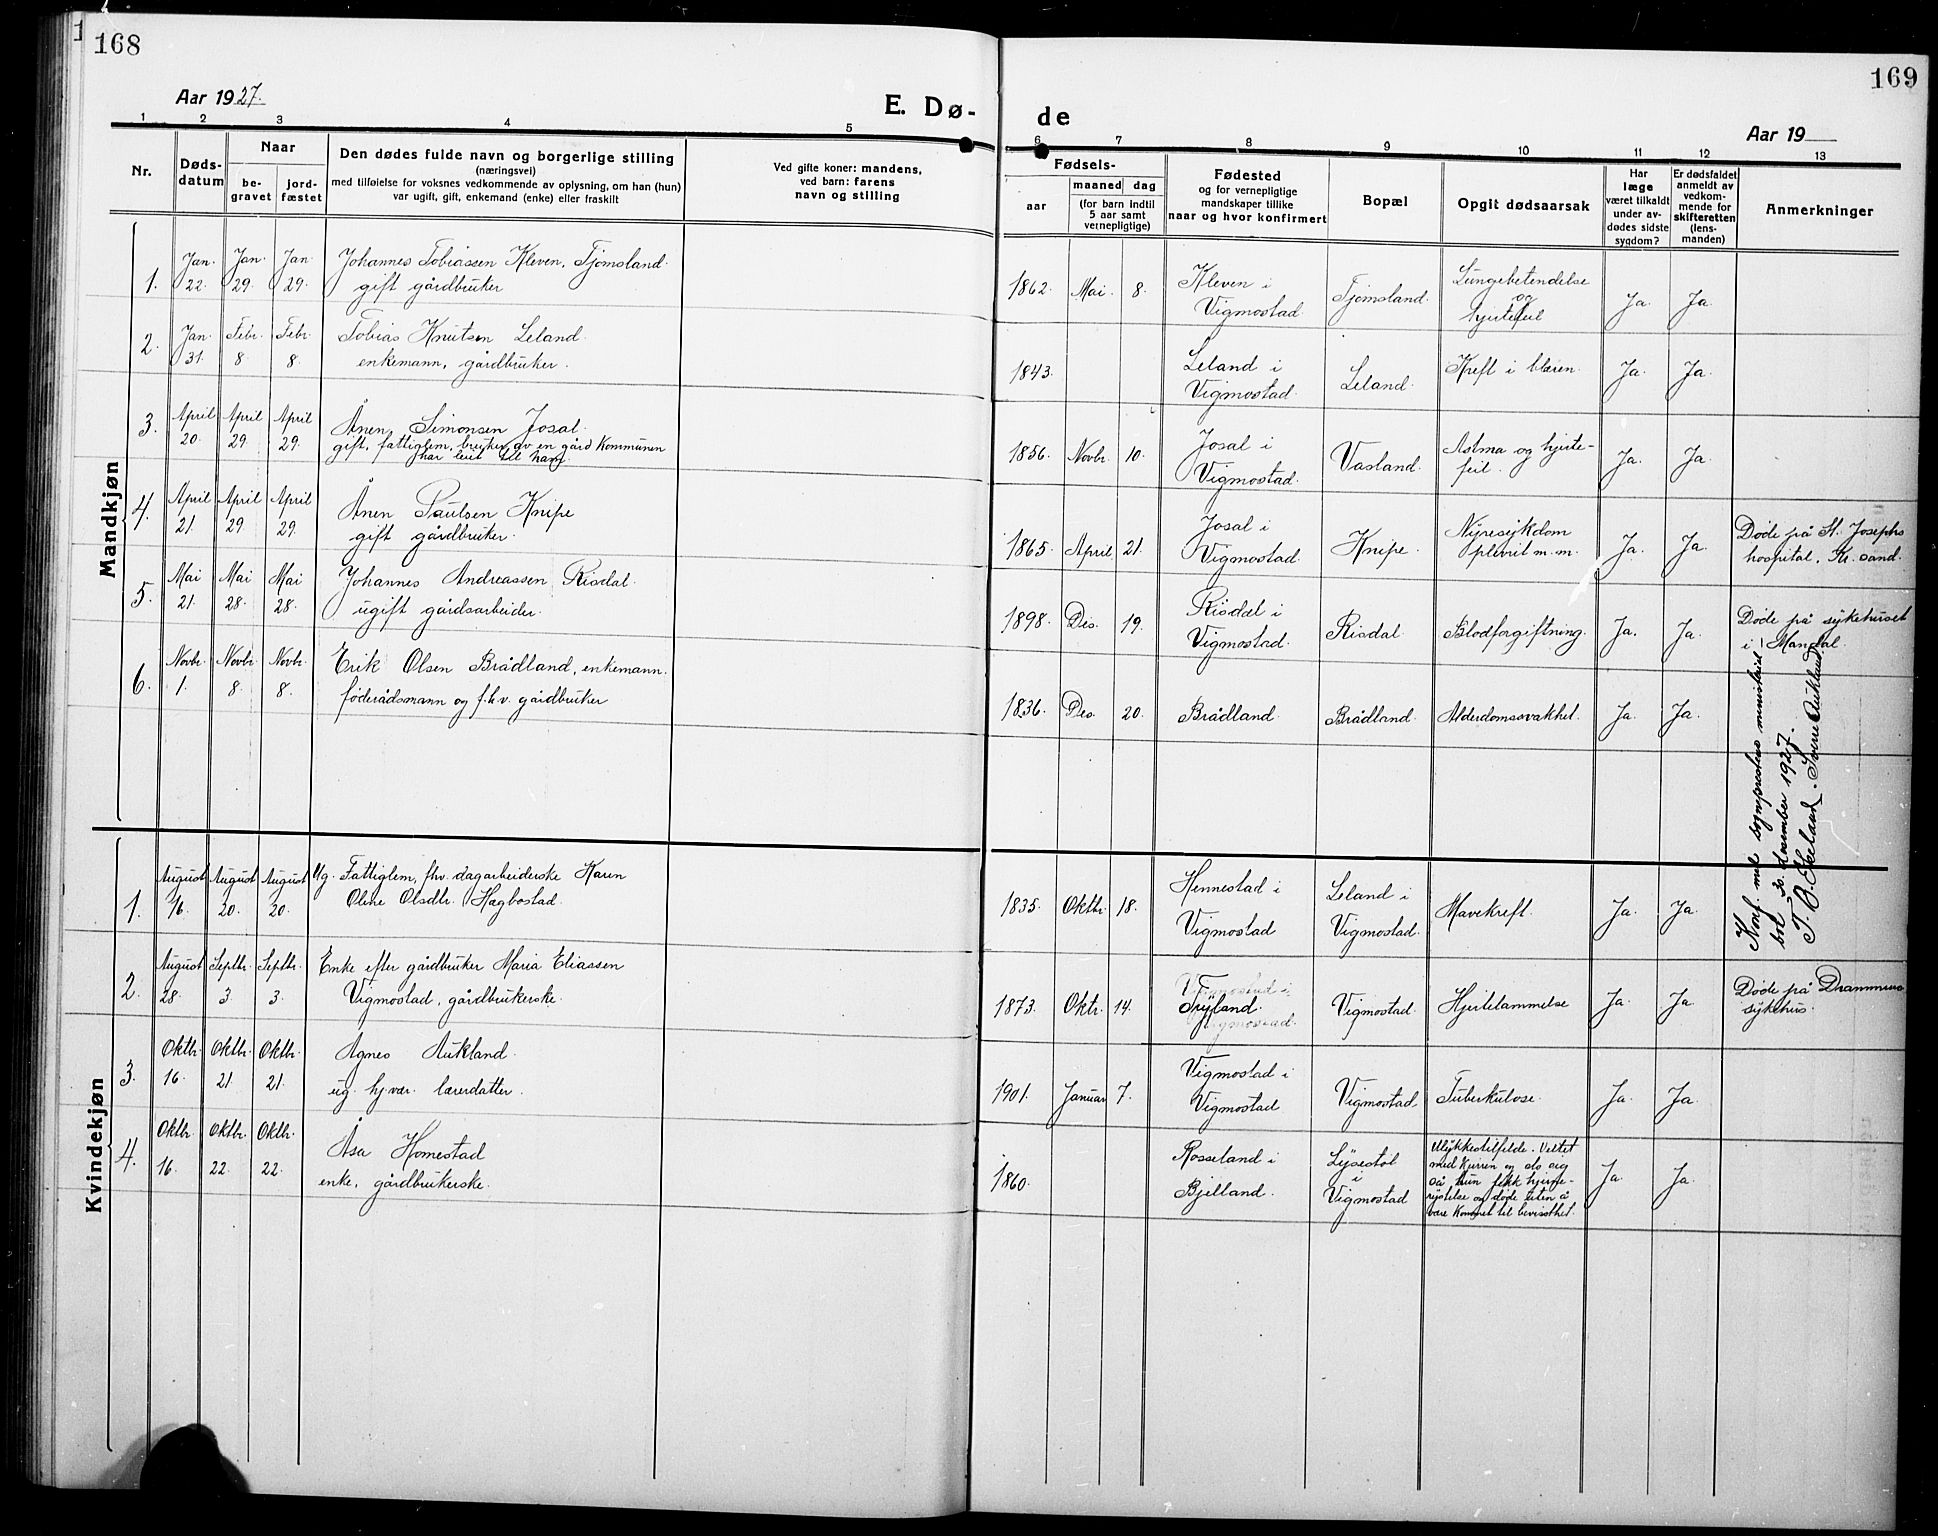 168
Aar 1927.
E. Dø-
1 2 3 4 5
Nr.
Døds-
datum
Naar
be-
gravet
jord-
fæstet
Den dødes fulde navn og borgerlige stilling
(næringsvei)
med tilføielse for voksnes vedkommende av oplysning, om han (hun)
var ugift, gift, enkemand (enke) eller fraskilt
Ved gifte koner: mandens,
ved barn: farens
navn og stilling
Mandkjøn
1. Jan. 22. Jan. 29. Jan. 29. Johannes Tobiassen Kleven, Tjomsland.
gift gårdbruker
2. Jan. 31. Febr. 8. Febr. 8. Tobias Knutsen Leland.
enkemann, gårdbruker.
3. April 20. April 29. April 29. Ånen Simonsen Josal.
gift, fattiglem, bruker av en gård Kommunen
har leiet til ham
4. April 21. April 29. April 29. Ånen Paulsen Knipe
gift gårdbruker.
5. Mai 21. Mai 28. Mai 28. Johannes Andreassen Risdal.
ugift gårdsarbeider.
6. Novbr. 1. Novbr. 8. Novbr. 8. Erik Olsen Brådland, enkemann.
føderådsmann og f.h.v. gårdbruker
Kvindekjøn
1. August 16. August 20. August 20. Ug. Fattiglem, fhv. dagarbeiderske Karen
Oline Olsdtr. Hægbostad.
2. August 28. Septbr. 3. Septbr. 3. Enke efter gårdbruker Maria Eliassen
Vigmostad, gårdbrukerske.
3. Oktbr. 16. Oktbr. 21. Oktbr. 21. Agnes Aukland.
ug. hj.vær. lærerdatter.
4. Oktbr. 16. Oktbr. 22. Oktbr. 22. Åsa Homestad
enke, gårdbrukerske.
169
de
Aar 19
6 7 8 9 10 11 12 13
Fødsels-
aar
maaned dag
(for barn indtil
5 aar samt
vernepligtige)
Fødested
og for vernepligtige
mandskaper tillike
naar og hvor konfirmert
Bopæl
Opgit dødsaarsak
Har
læge
været tilkaldt
under av-
dødes sidste
sygdom?
Er dødsfaldet
anmeldt av
vedkom-
mende for
skifteretten
(lens-
manden)
Anmerkninger
1862. Mai. 8. Kleven i
Vigmostad. Tjomsland. Lungebetendelse
og
hjertefeil Ja. Ja.
1843. Leland i
Vigmostad. Leland. Kreft i blæren. Ja. Ja.
1856. Novbr. 10. Josal i
Vigmostad. Vasland. Astma og hjerte-
feil. Ja. Ja.
1865. April 21. Josal i
Vigmostad. Knipe. Nyresykdom
plevrit m.m. Ja. Ja. Døde på St. Josephs
hospital, Kr.sand.
1898. Des. 19. Risdal i
Vigmostad. Risdal. Blodforgiftning. Ja. Ja. Døde på sykehuset
i Mandal.
1836. Des. 20. Brådland. Brådland. Alderdomssvakhet. Ja. Ja.
1835. Oktbr. 18. Hennestad i
Vigmostad Leland i
Vigmostad. Mavekreft. Ja. Ja.
1873. Oktr. 14. Vigmostad i
Tryland.
Vigmostad. Vigmostad. Hjertelammelse Ja. Ja. Døde på Drammens
sykehus.
1901. Januar 7. Vigmostad i
Vigmostad Vigmostad Tuberkulose. Ja. Ja.
1860. Rosseland i
Bjelland. Lysestøl
i
Vigmostad Ulykkestilfelde. Veltet
med Kjerren og slo sig
så hun fikk hjerne-
rystelse og døde uten å
være kommet til bevissthet. Ja. Ja.
Konf. med sogneprestens ministerial-
bok 30. desember 1927.
T. B. Ekeland. Sverre Aukland.